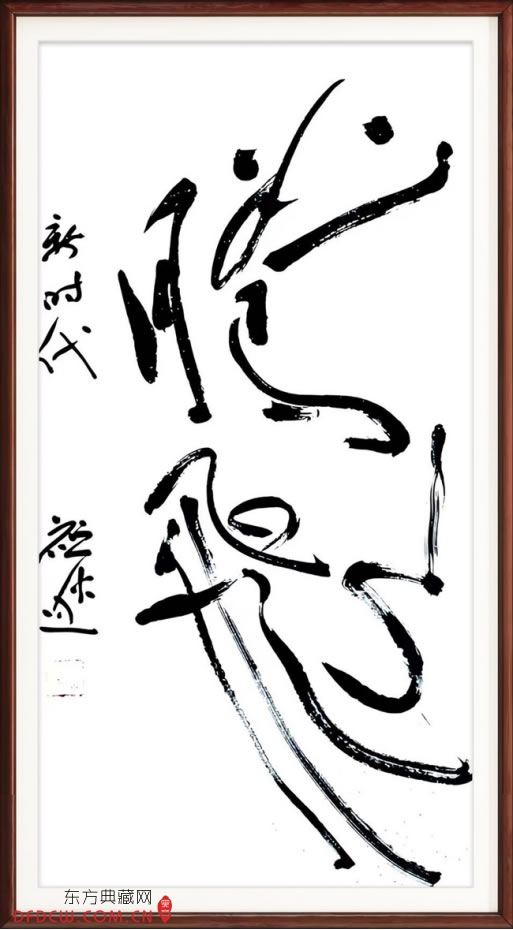 腾飞
新时代
东方典藏网
DFDCW.COM.CN